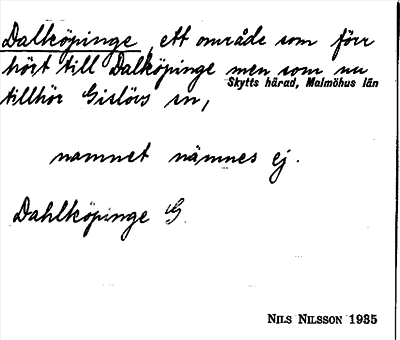 Dalköpinge, ett område som förr
hört till Dalköpinge men som nu
Skytts härad, Malmöhus län
tillhör Gislövs sn,
namnet nämnes ej.
Dahlköpinge G.
NILS NILSSON 1935